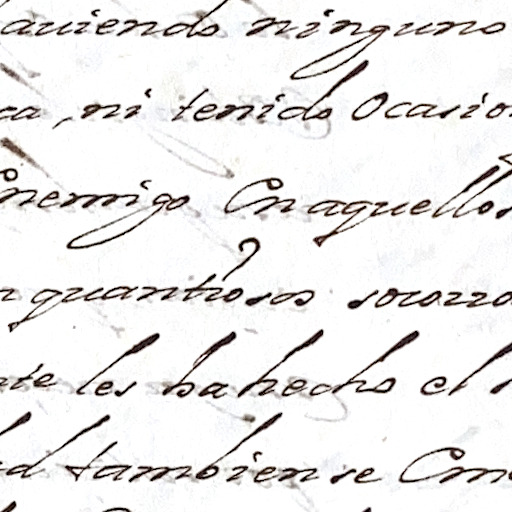 auiendo ninguno
ca, ni tenido Ocasio
Enemigo Enaquellos
n quantiosos socorro
nte les ha hecho el
d tambien se Em